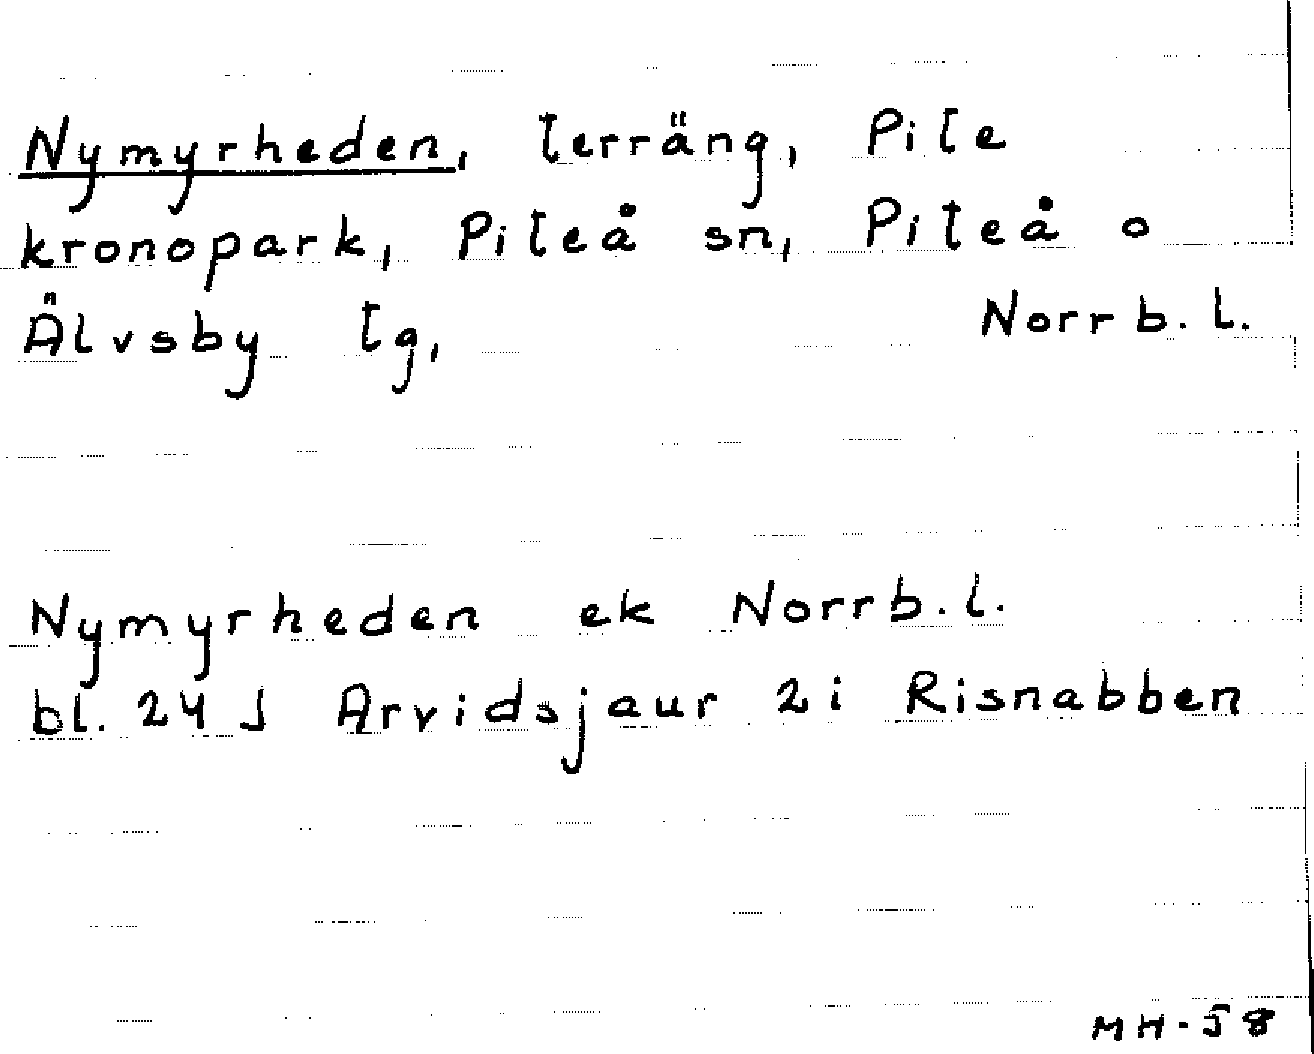 Nymyrheden, terräng, Pite
kronopark, Piteå sn, Piteå o
Älvsby tg, Norrb. l.
Nymyrheden ek Norrb. l.
bl. 24 J Arvidsjaur 2 i Risnabben
MH-58